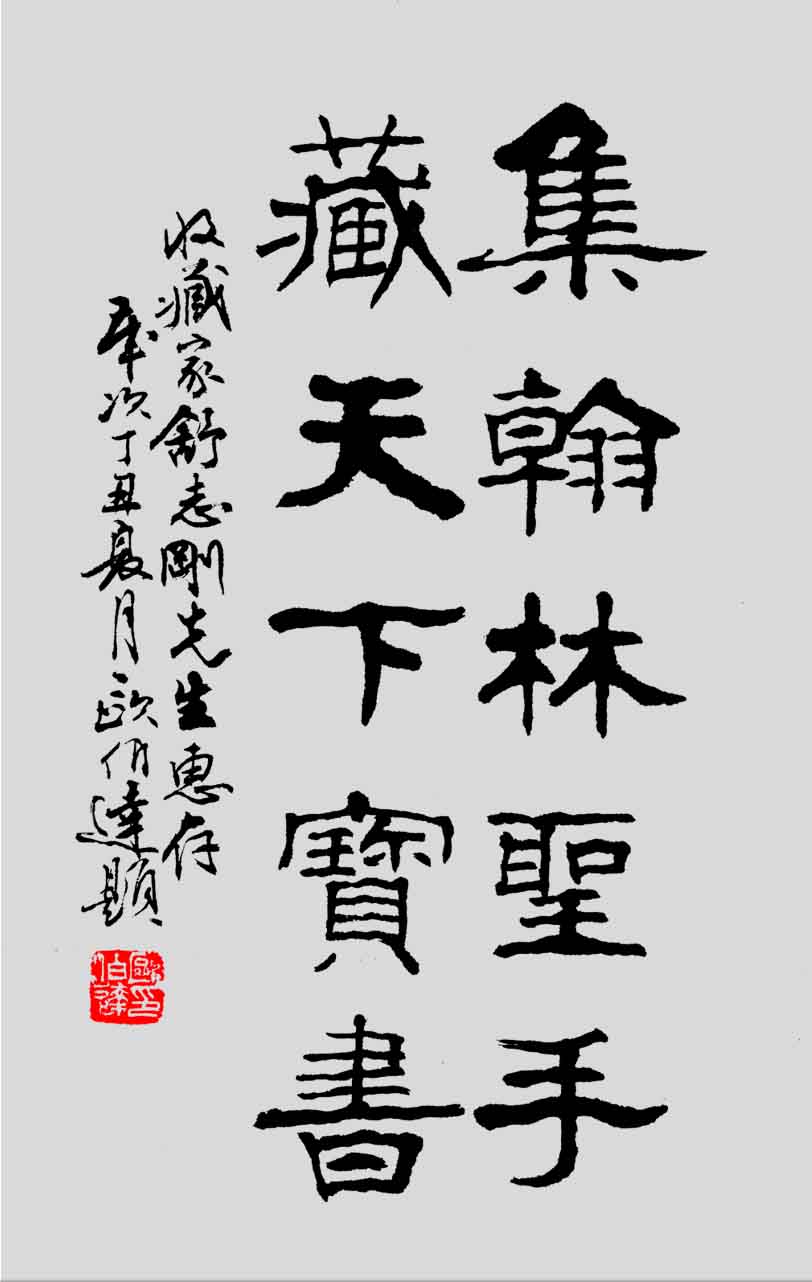 集翰林聖手
藏天下寶書
收藏家舒志剛先生惠存
歲次丁丑夏月歐伯達題
歐印伯達